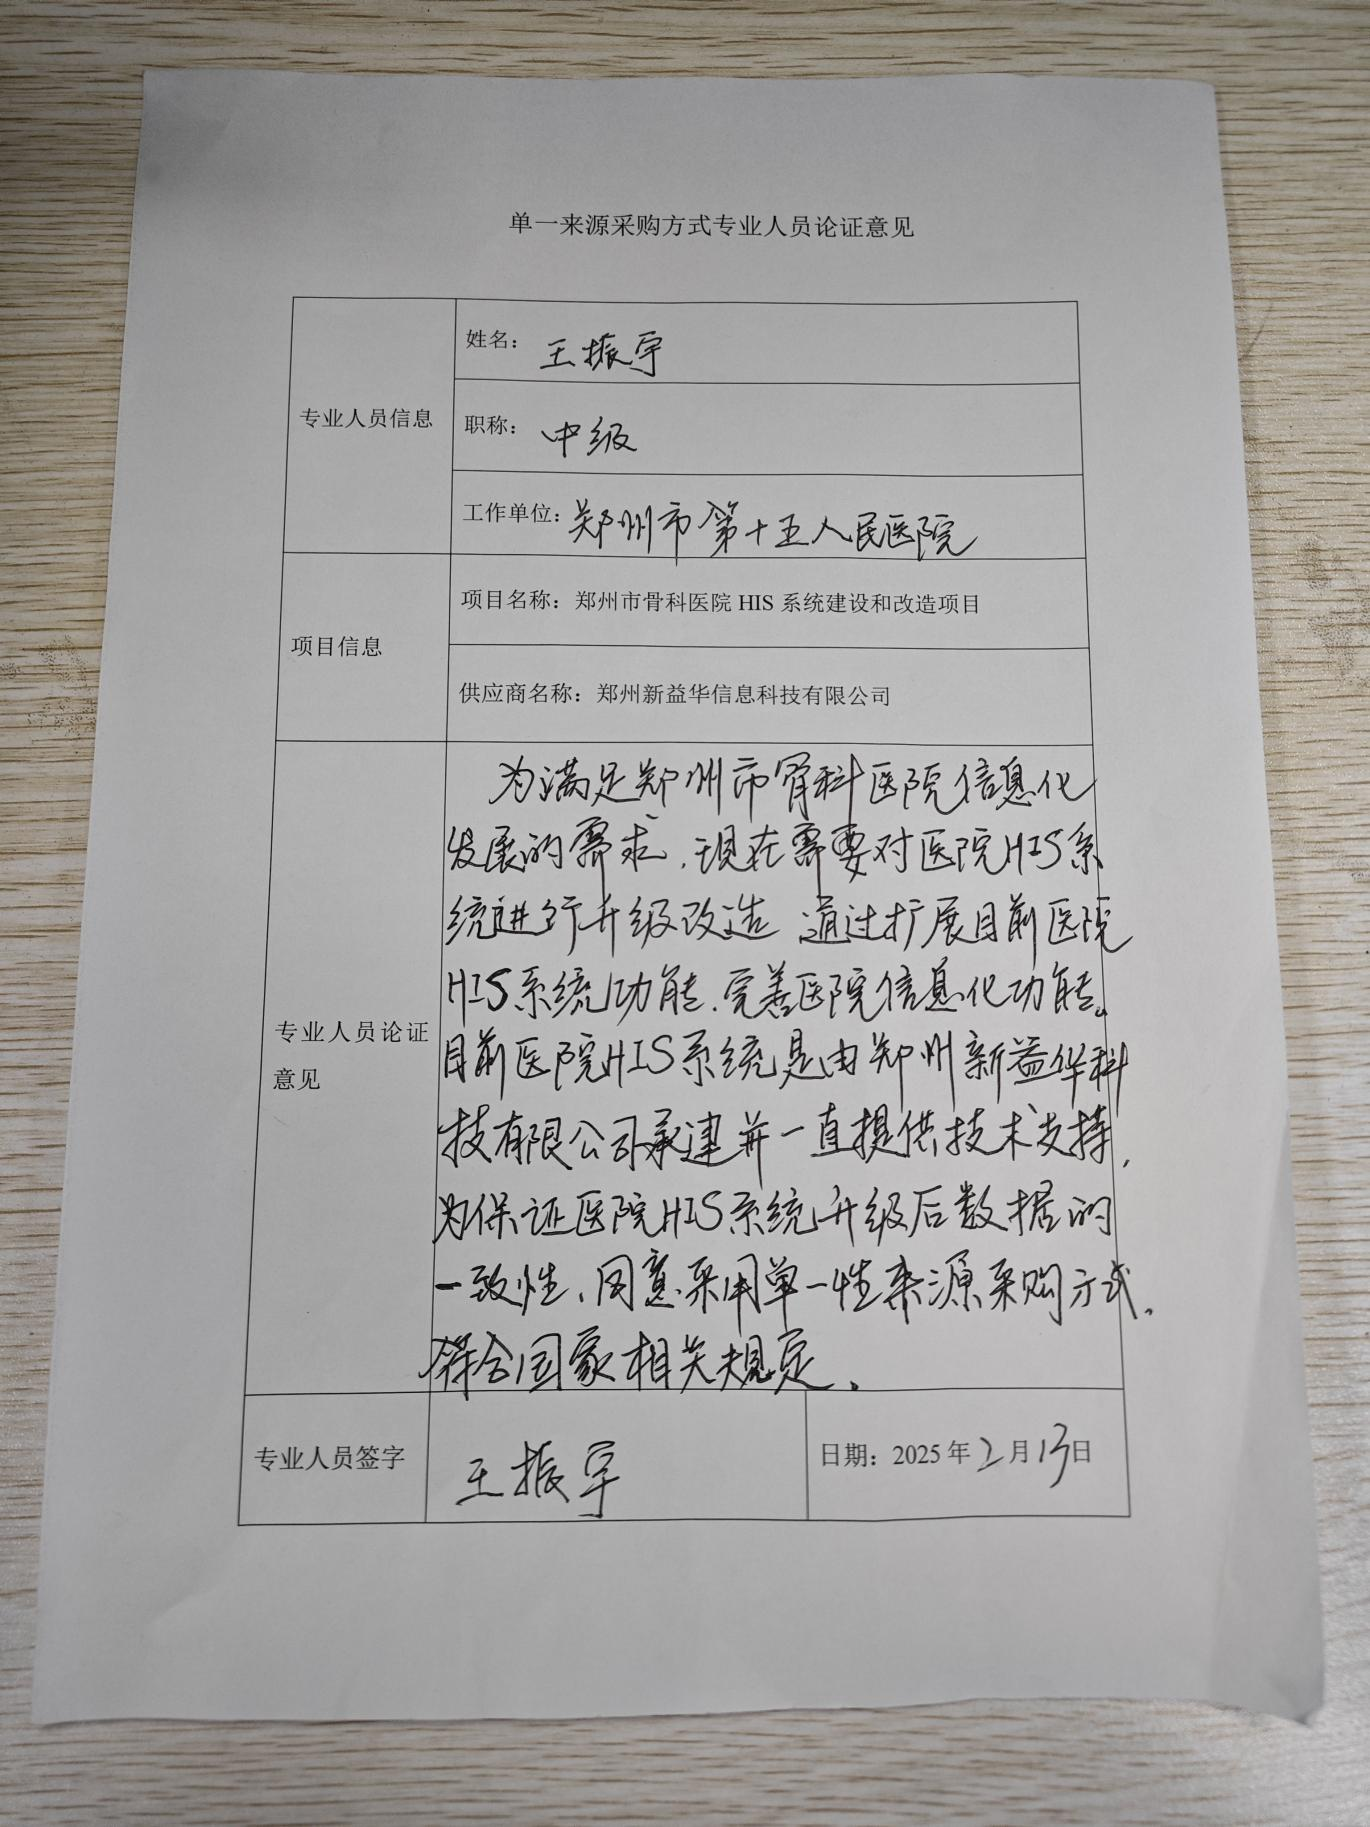 单一来源采购方式专业人员论证意见
专业人员信息
姓名：王振宇
职称：中级
工作单位：郑州市第十五人民医院
项目信息
项目名称：郑州市骨科医院 HIS 系统建设和改造项目
供应商名称：郑州新益华信息科技有限公司
专业人员论证
意见
为满足郑州市骨科医院信息化
发展的需求，现在需要对医院HIS系
统进行升级改造 通过扩展目前医院
HIS系统功能，完善医院信息化功能。
目前医院HIS系统是由郑州新益华科
技有限公司承建并一直提供技术支持，
为保证医院HIS系统升级后数据的
一致性，同意采用单一性来源采购方式，
符合国家相关规定。
专业人员签字
王振宇
日期：2025年2月13日